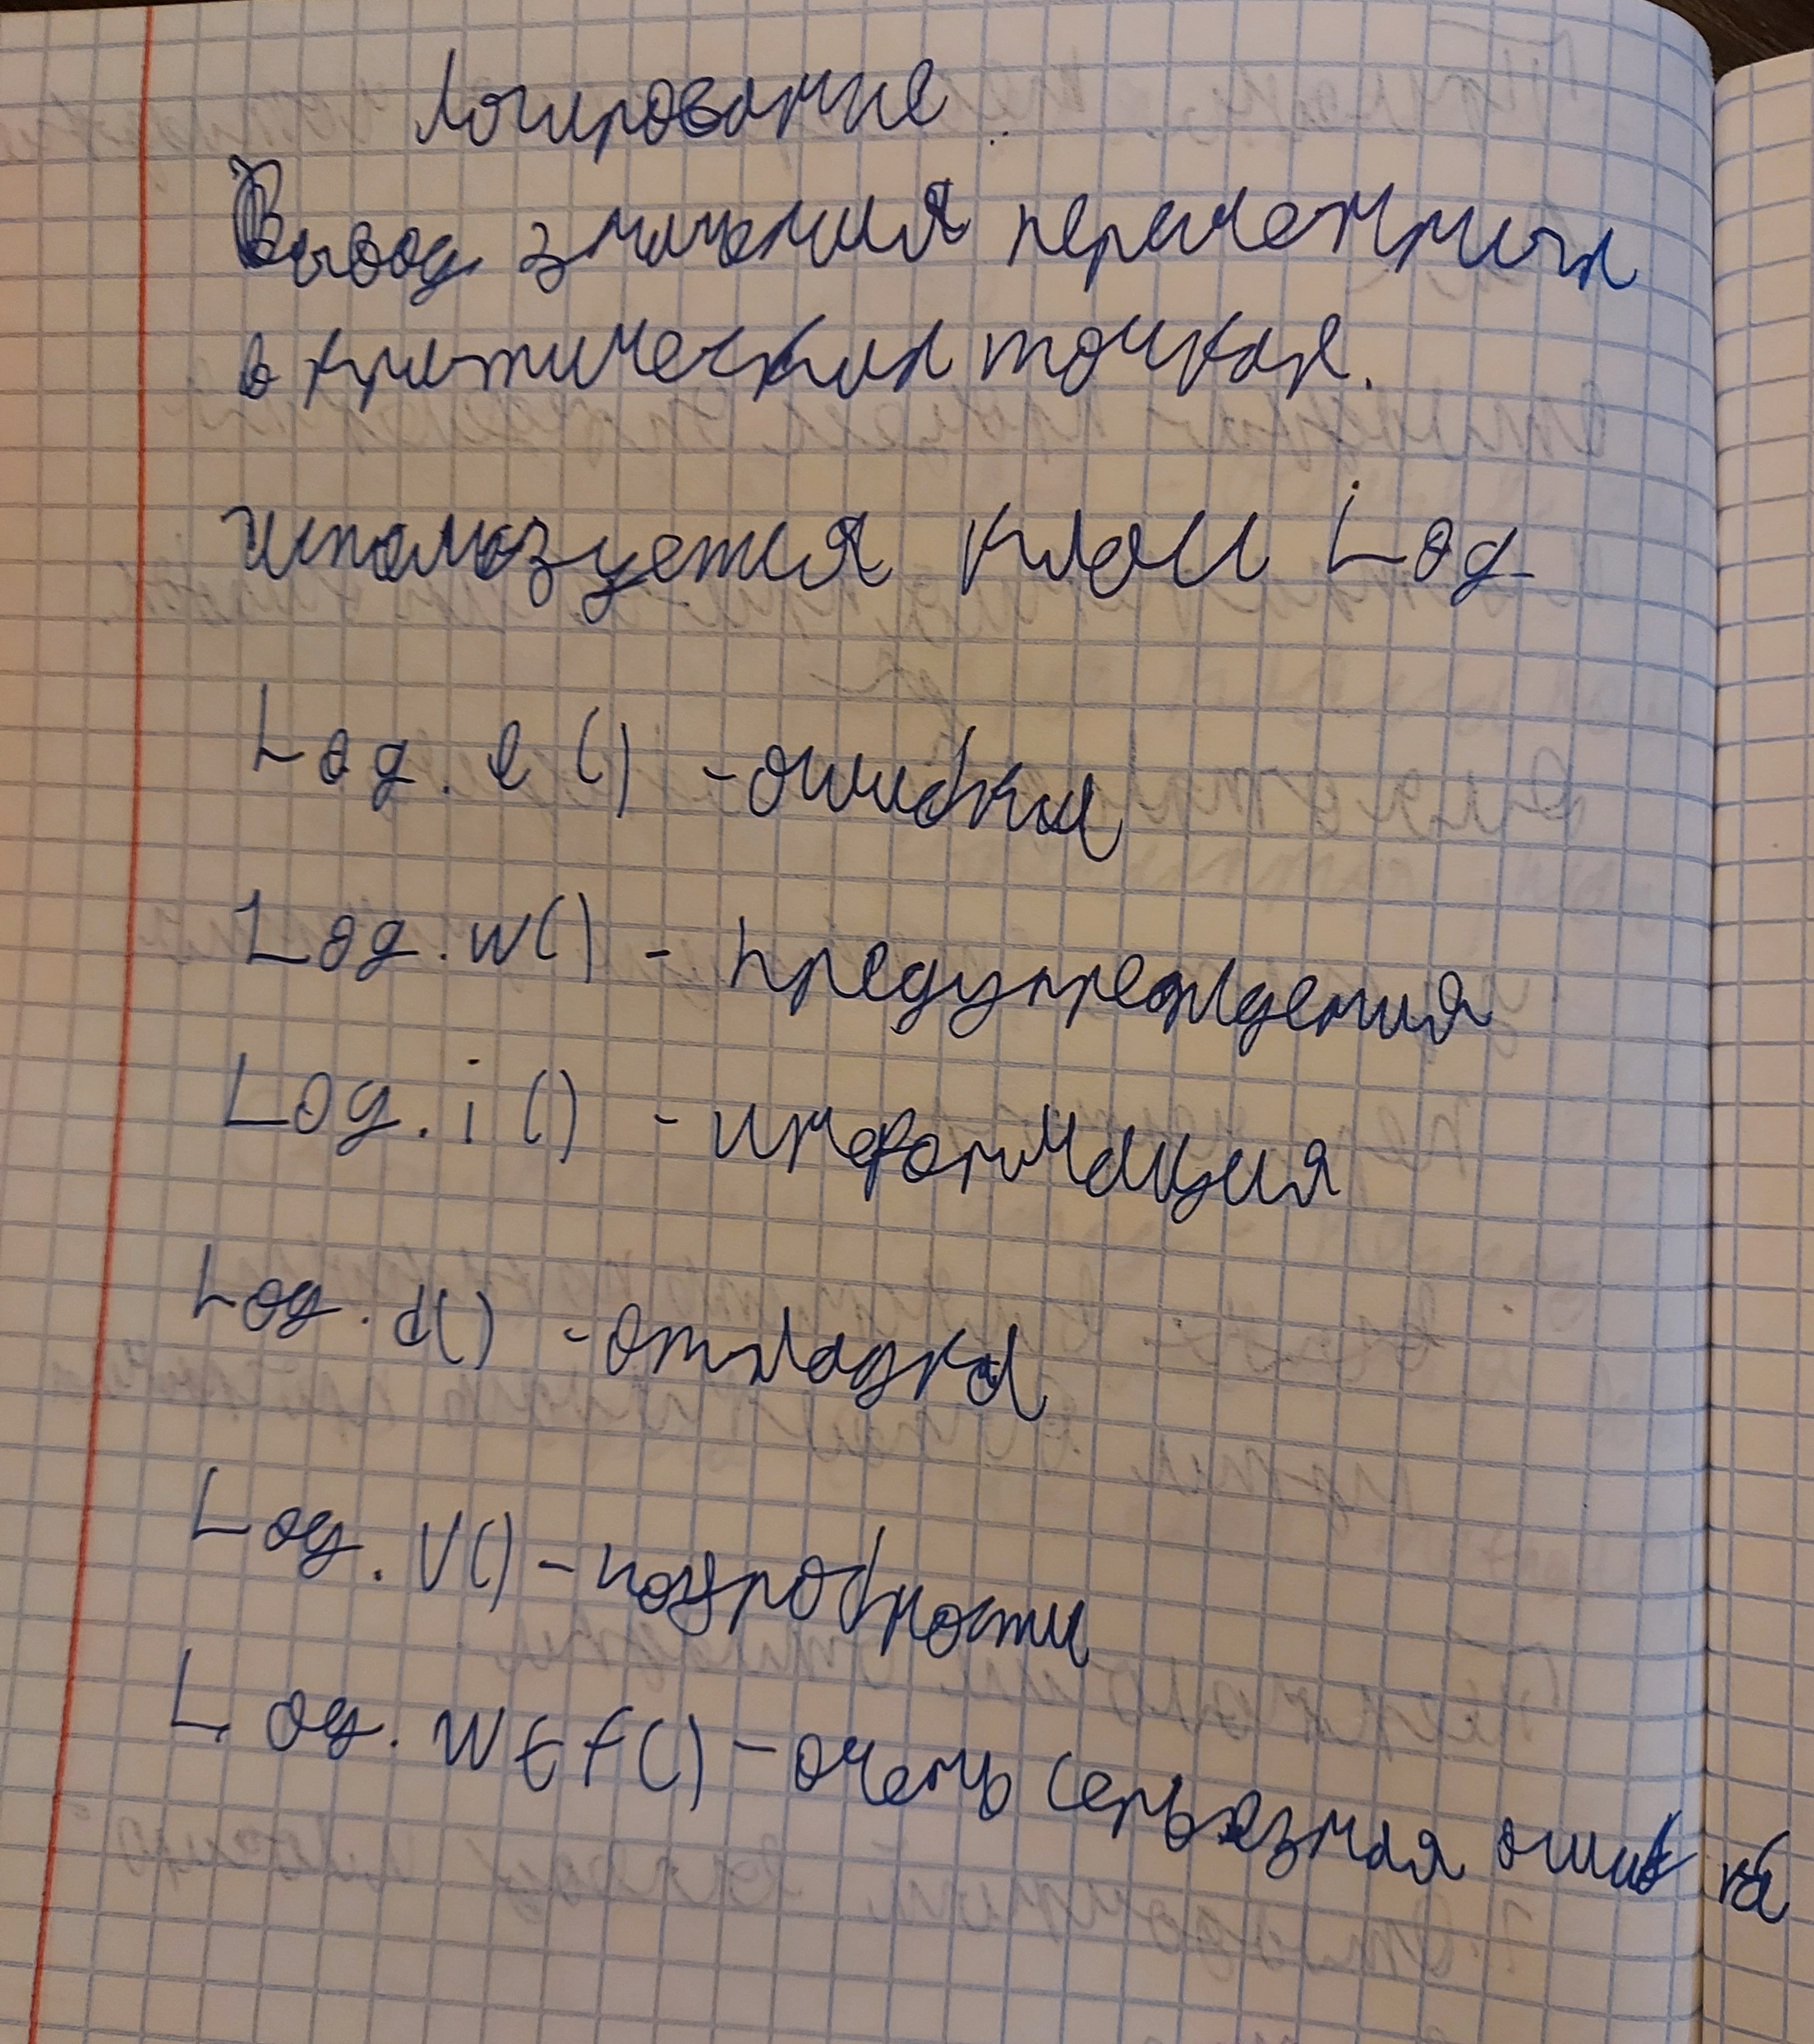 Логирование
Вывод значения переменных
в критических точках.
используется класс Log
Log. e () - ошибка
Log. w() - предупреждения
Log. i () - информация
Log. d() - отладка
Log. V() - подробности
Log. WTF() - очень серьезная ошибка